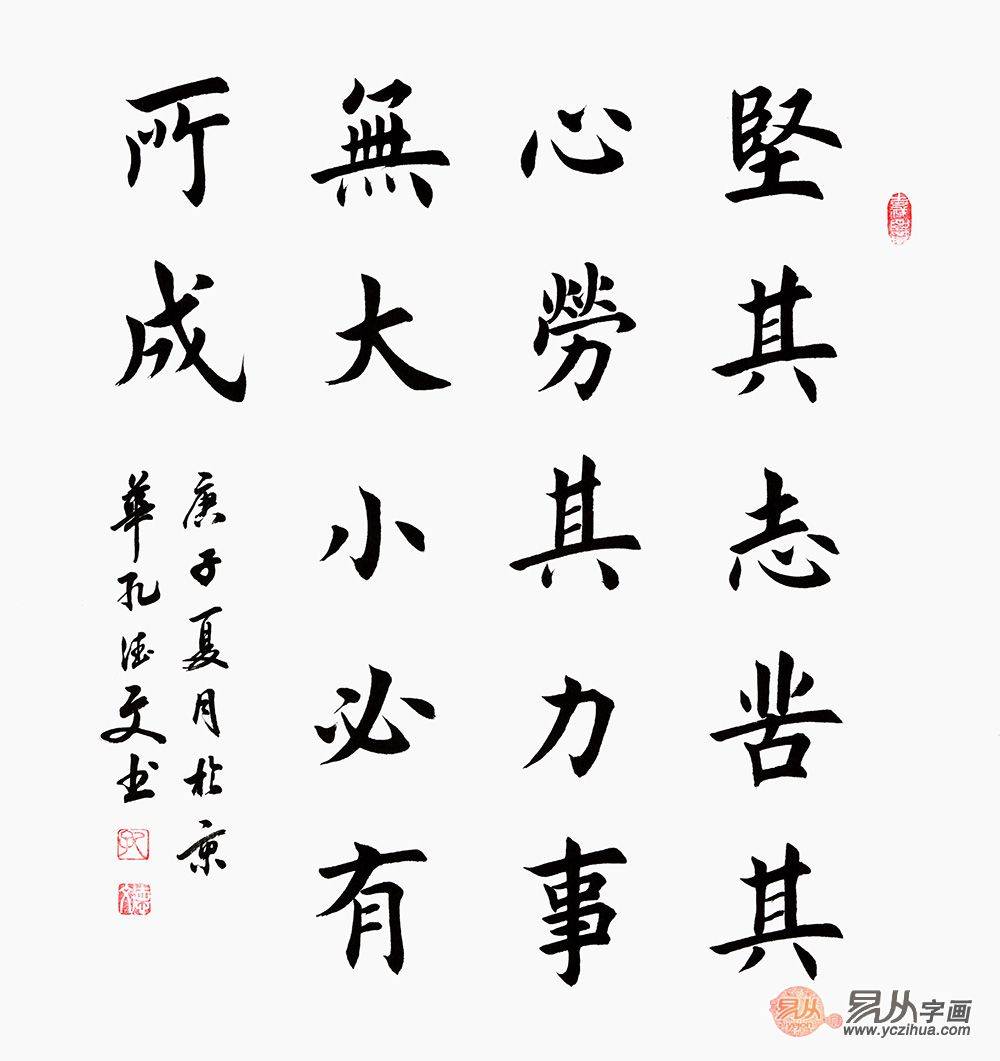 堅其志苦其
心勞其力事
無大小必有
所成
庚子夏月於京
華孔德文书
易从
yejon
易从字画
www.yczihua.com